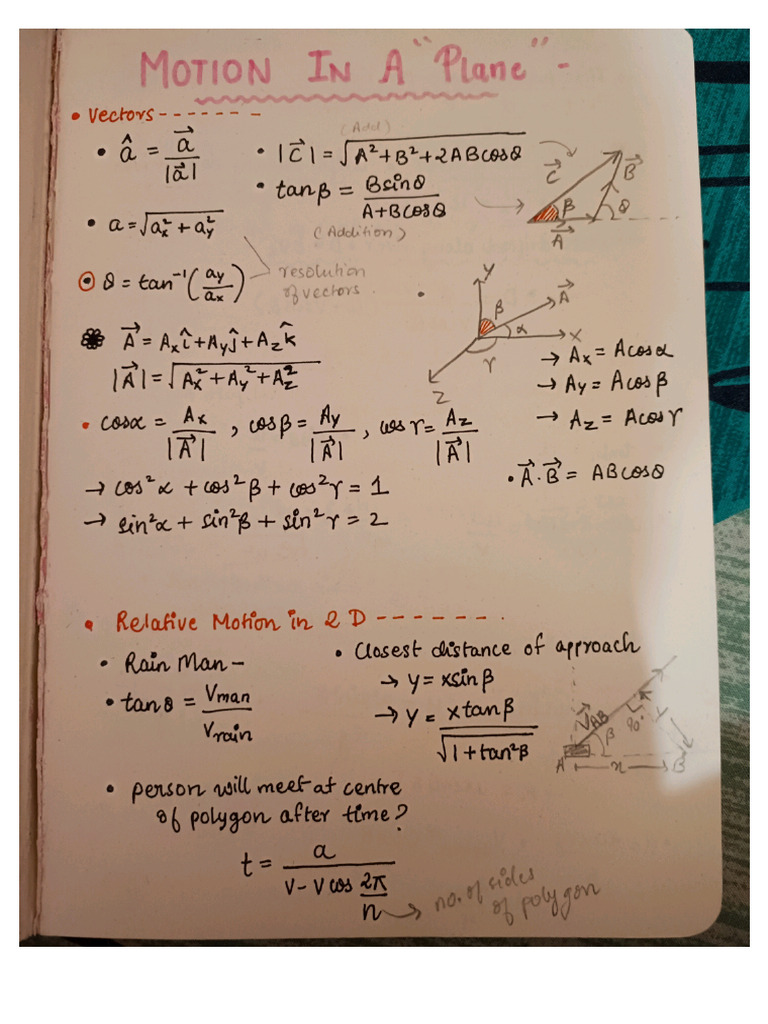 MOTION IN A "Plane" -
• Vectors-------
• â = a⃗/|a⃗|
(Add)
• |C⃗| = √(A²+B²+2ABcosθ)
• tanβ = Bsinθ/(A+Bcosθ)
(Addition)
C⃗ B⃗ β θ A⃗
• a = √(aₓ²+a_y²)
θ = tan⁻¹(a_y/aₓ)
resolution
of vectors.
A⃗ = Aₓî+A_yĵ+A_zk̂
|A⃗| = √(Aₓ²+A_y²+A_z²)
Y β A⃗ α X γ Z
→ Aₓ = Acosα
→ A_y = Acosβ
→ A_z = Acosγ
• cosα = Aₓ/|A⃗| , cosβ = A_y/|A⃗| , cosγ = A_z/|A⃗|
• A⃗.B⃗ = ABcosθ
→ cos²α + cos²β + cos²γ = 1
→ sin²α + sin²β + sin²γ = 2
• Relative Motion in 2D ------ .
• Rain Man -
• tanθ = Vman/Vrain
• Closest distance of approach
→ y = xsinβ
→ y = xtanβ/√(1+tan²β)
V⃗AB 90° y β A x B
• person will meet at centre
of polygon after time?
t = a/(v-vcos 2π/n)
no. of sides
of polygon